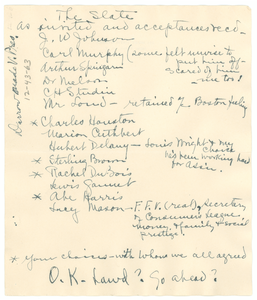 The Slate
as invited and acceptances recd -
J. W. Johnson
Carl Murphy (some felt unwise to
put him off
Scared of him
me too!
Arthur Spingarn
Dr Nelson
C H Studin
Mr Loud - retained
Boston
* Charles Houston
Marion Cuthbert
Hubert Delany - Louis Wright & my
Choice
He's been working hard
for Assoc.
* Sterling Brown
* Rachel DuBois
Lewis Gannett
* Abe Harris
Lucy Mason - F.F.V. (real) Secretary
of Consumers League
money, & family & social
prestige.
* your choices - with whom we all agreed
O.K. Lawd? Go ahead?
12-43-63